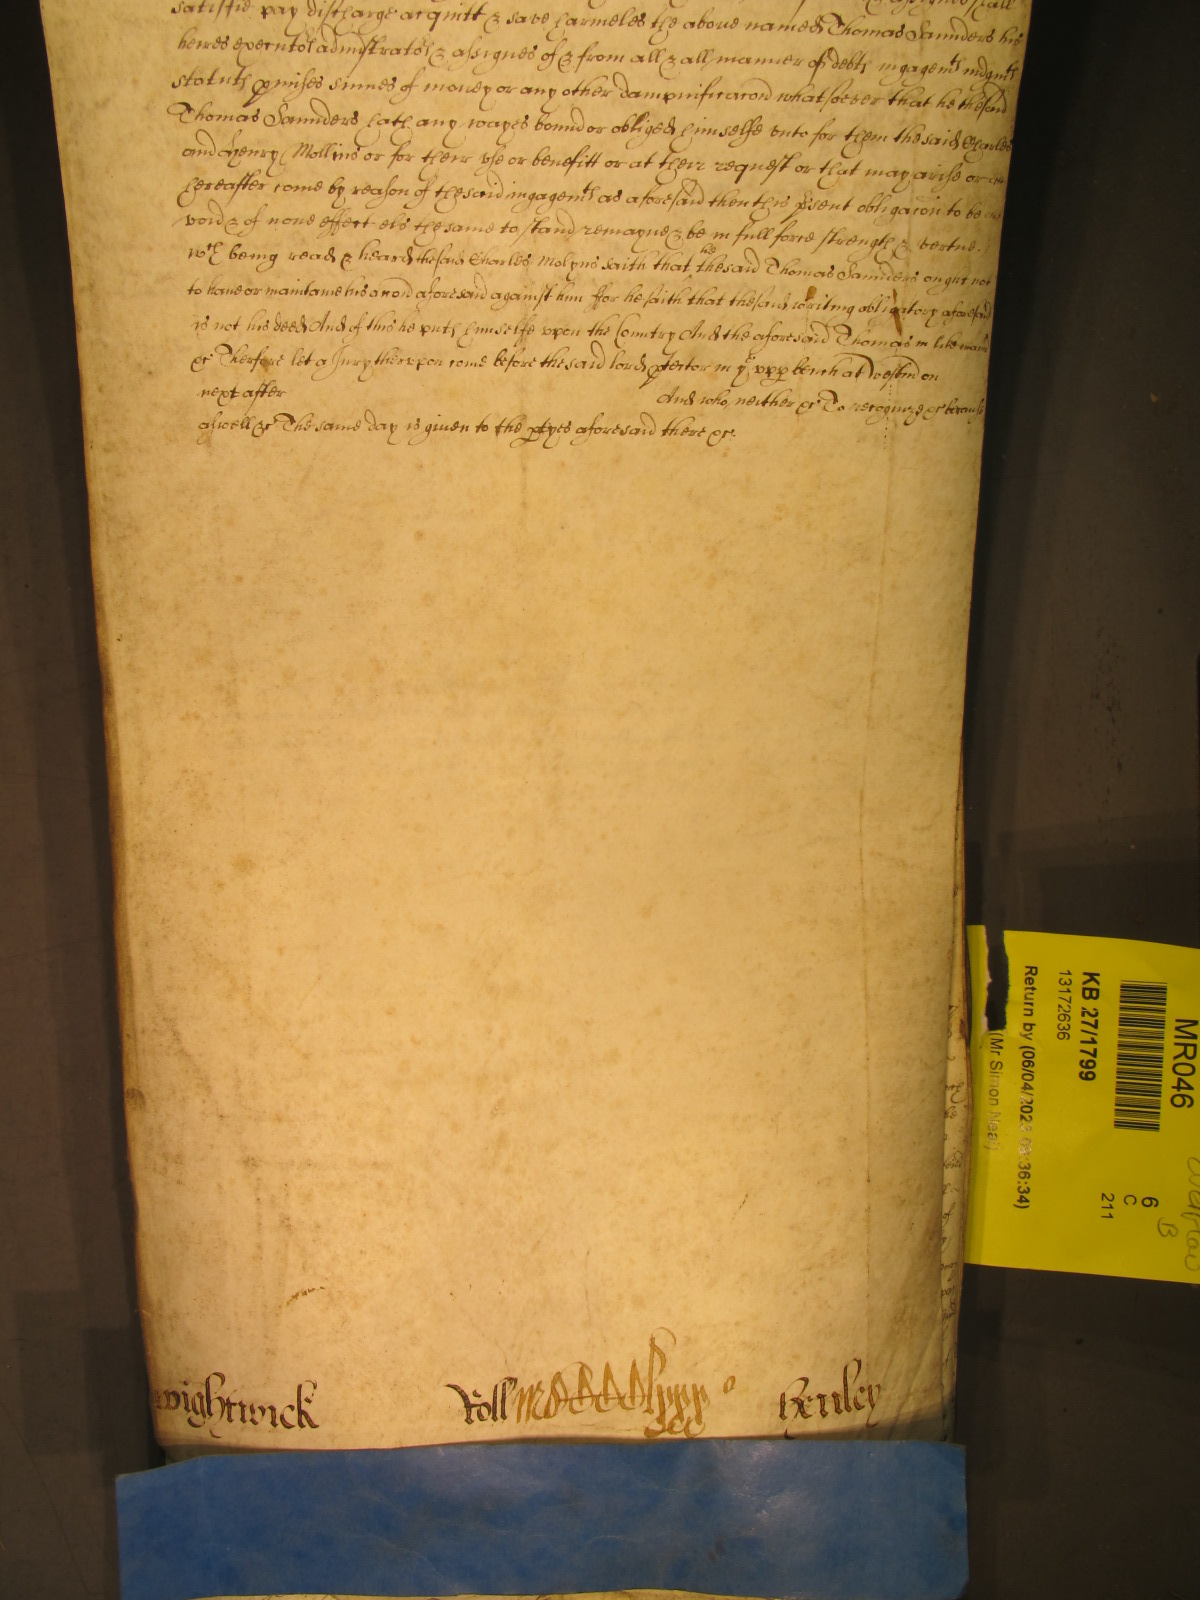 satisfie pay discharge acquitt & save harmeles the above named Thomas Saunders his
heires executors administrators & assignes of & from all & all manner of debts ingagemts iudgmts
statuts pmises summes of money or any other dampnificacon whatsoever that he thesaid
Thomas Saunders hath any wayes bound or obliged himselfe vnto for them the said Charles
and Henry Mollins or for their vse or benefitt or at their request or that may arise or
hereafter come by reason of thesaid ingagemts as aforesaid then this psent obligacon to be
void & of none effect els the same to stand remayne & be in full force strength & vertue.
wch being read & heard thesaid Charles Molyns saith that hee thesaid Thomas Saunders ought not
to haue or maintaine his accon aforesaid against him ffor he saith that thesaid writing obligatory aforesaid
is not his deed And of this he putts himselfe vpon the Country And the aforesaid Thomas in like
&c Therfore let a Jury thervpon come before the said lord ptector in ye vpp bench at Westm on
next after And who neither &c To recognize &c because
aswell &c The same day is given to the ptyes aforesaid there &c.
Wightwick
Roll
Henley
MR046
KB 27/1799
13172636
Return by (06/04/202 :36:34)
(Mr Simon Neal)
6
C
211
B